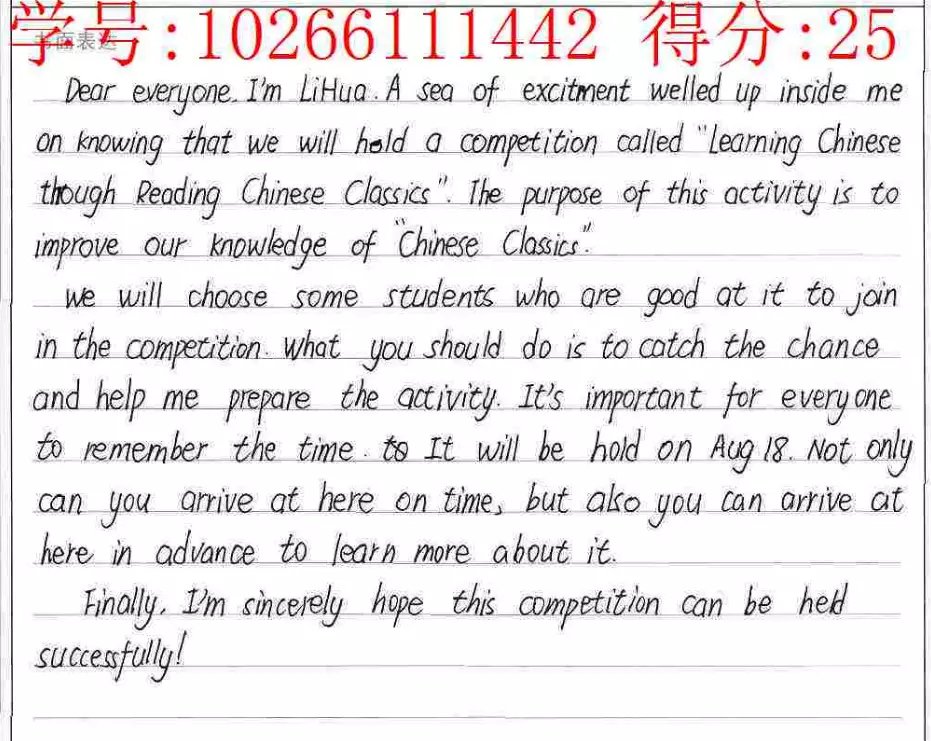 学号:10266111442 得分:25
书面表达
Dear everyone. I'm LiHua. A sea of excitment welled up inside me
on knowing that we will hold a competition called "Learning Chinese
though Reading Chinese Classics". The purpose of this activity is to
improve our knowledge of "Chinese Classics".
We will choose some students who are good at it to join
in the competition. What you should do is to catch the chance
and help me prepare the activity. It's important for everyone
to remember the time. to It will be hold on Aug 18. Not only
can you arrive at here on time, but also you can arrive at
here in advance to learn more about it.
Finally, I'm sincerely hope this competition can be held
successfully!